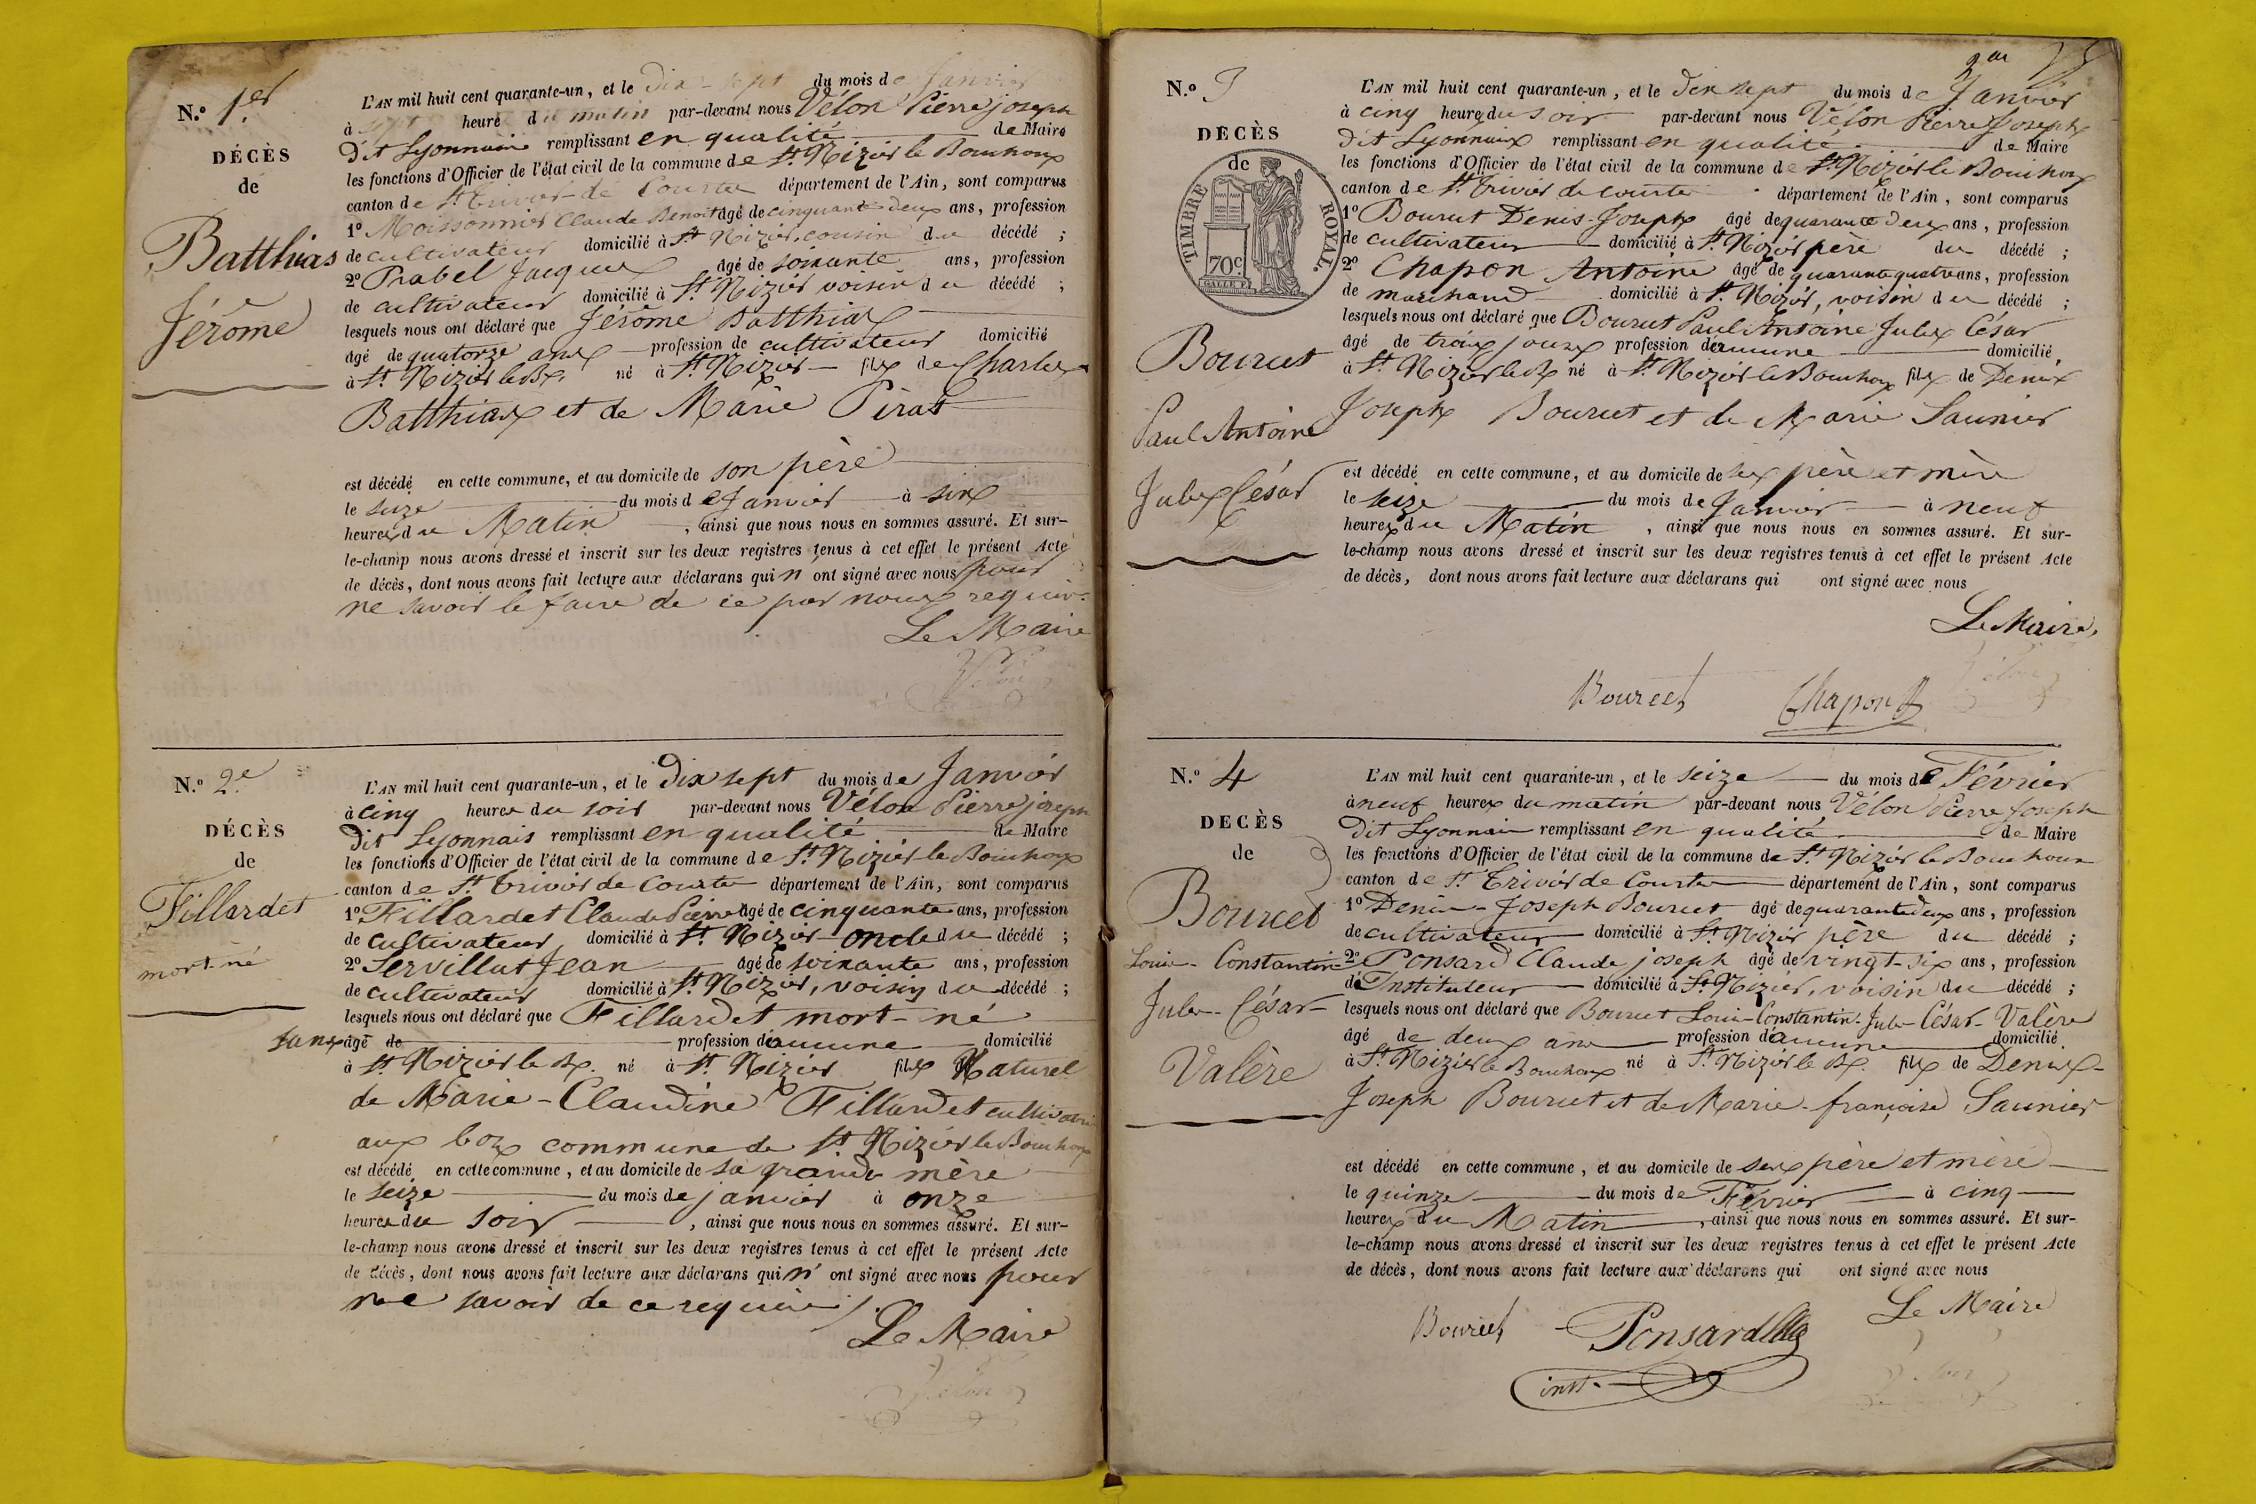 N.º 1.er
DÉCÈS
de
Batthias
Jérôme
L'AN mil huit cent quarante-un, et le dix-sept du mois de Janvier
à sept heure du matin par-devant nous Vélon Pierre joseph
dit Lyonnais remplissant en qualité de Maire
les fonctions d'Officier de l'état civil de la commune de St. Nizier le Bouchoux
canton de St. Trivier-de Courtes département de l'Ain, sont comparus
1º Moissonnier Claude Benoit âgé de cinquante-deux ans, profession
de cultivateur domicilié à St Nizier, cousin du décédé ;
2º Prabel Jacques âgé de soixante ans, profession
de cultivateur domicilié à St. Nizier voisin du décédé ;
lesquels nous ont déclaré que Jérôme Batthias
âgé de quatorze ans profession de cultivateur domicilié
à St. Nizier le Bx. né à St. Nizier fils de Charles
Batthias et de Marie Pirat
est décédé en cette commune, et au domicile de son père
le seize du mois de Janvier à six
heures du Matin, ainsi que nous nous en sommes assuré. Et sur-
le-champ nous avons dressé et inscrit sur les deux registres tenus à cet effet le présent Acte
de décès, dont nous avons fait lecture aux déclarans qui n'ont signé avec nous pour
ne savoir le faire de ce par nous requis.
Le Maire
Vélon
N.º 2.e
DÉCÈS
de
Fillardet
mort-né
L'AN mil huit cent quarante-un, et le dix sept du mois de Janvier
à cinq heures du soir par-devant nous Vélon Pierre joseph
dit Lyonnais remplissant en qualité de Maire
les fonctions d'Officier de l'état civil de la commune de St. Nizier le Bouchoux
canton de St. Trivier de Courtes département de l'Ain, sont comparus
1º Fillardet Claude Pierre âgé de cinquante ans, profession
de cultivateur domicilié à St. Nizier oncle du décédé ;
2º Servillat Jean âgé de soixante ans, profession
de cultivateur domicilié à St. Nizier, voisin du décédé ;
lesquels nous ont déclaré que Fillardet mort-né
sans âgé de profession d'aucune domicilié
à St. Nizier le Bx. né à St. Nizier fils Naturel
de Marie-Claudine Fillardet cultivatrice
aux bois commune de St. Nizier le Bouchoux
est décédé en cette commune, et au domicile de sa grande mère
le seize du mois de janvier à onze
heures du soir, ainsi que nous nous en sommes assuré. Et sur-
le-champ nous avons dressé et inscrit sur les deux registres tenus à cet effet le présent Acte
de décès, dont nous avons fait lecture aux déclarans qui n'ont signé avec nous pour
ne savoir de ce requis ./.
Le Maire
Vélon
N.º 3
DÉCÈS
de
TIMBRE ROYAL.
70c
Bourcet
Paul Antoine
Jules César
L'AN mil huit cent quarante-un, et le dix sept du mois de Janvier
à cinq heure du soir par-devant nous Vélon Pierre Joseph
dit Lyonnais remplissant en qualité de Maire
les fonctions d'Officier de l'état civil de la commune de St. Nizier le Bouchoux
canton de St. Trivier de courtes département de l'Ain, sont comparus
1º Bourcet Denis-Joseph âgé de quarante deux ans, profession
de cultivateur domicilié à St. Nizier père du décédé ;
2º Chapon Antoine âgé de quarante quatre ans, profession
de marchand domicilié à St. Nizier, voisin du décédé ;
lesquels nous ont déclaré que Bourcet Paul Antoine Jules César
âgé de trois jours profession d'aucune domicilié
à St. Nizier le Bx né à St. Nizier le Bouchoux fils de Denis
Joseph Bourcet et de Marie Saunier
est décédé en cette commune, et au domicile de ses père et mère
le seize du mois de Janvier à neuf
heures du Matin, ainsi que nous nous en sommes assuré. Et sur-
le-champ nous avons dressé et inscrit sur les deux registres tenus à cet effet le présent Acte
de décès, dont nous avons fait lecture aux déclarans qui ont signé avec nous
Le Maire,
Bourcet Chapon Vélon
N.º 4
DECÈS
de
Bourcet
Louis-Constantin
Jules-César-
Valère
L'AN mil huit cent quarante-un, et le seize du mois de Février
à neuf heures du matin par-devant nous Vélon Pierre Joseph
dit Lyonnais remplissant en qualité de Maire
les fonctions d'Officier de l'état civil de la commune de St. Nizier le Bouchoux
canton de St. Trivier de Courtes département de l'Ain, sont comparus
1º Denis-Joseph Bourcet âgé de quarante deux ans, profession
de cultivateur domicilié à St. Nizier père du décédé ;
2º Ponsard Claude joseph âgé de vingt-six ans, profession
d'Instituteur domicilié à St. Nizier, voisin du décédé ;
lesquels nous ont déclaré que Bourcet Louis-Constantin-Jules-César-Valère
âgé de deux ans profession d'aucune domicilié
à St. Nizier le Bouchoux né à St. Nizier le Bx. fils de Denis-
Joseph Bourcet et de Marie-françoise Saunier
est décédé en cette commune, et au domicile de ses père et mère
le quinze du mois de Février à cinq
heures du Matin, ainsi que nous nous en sommes assuré. Et sur-
le-champ nous avons dressé et inscrit sur les deux registres tenus à cet effet le présent Acte
de décès, dont nous avons fait lecture aux déclarans qui ont signé avec nous
Le Maire
Bourcet Ponsard
instr.
Vélon